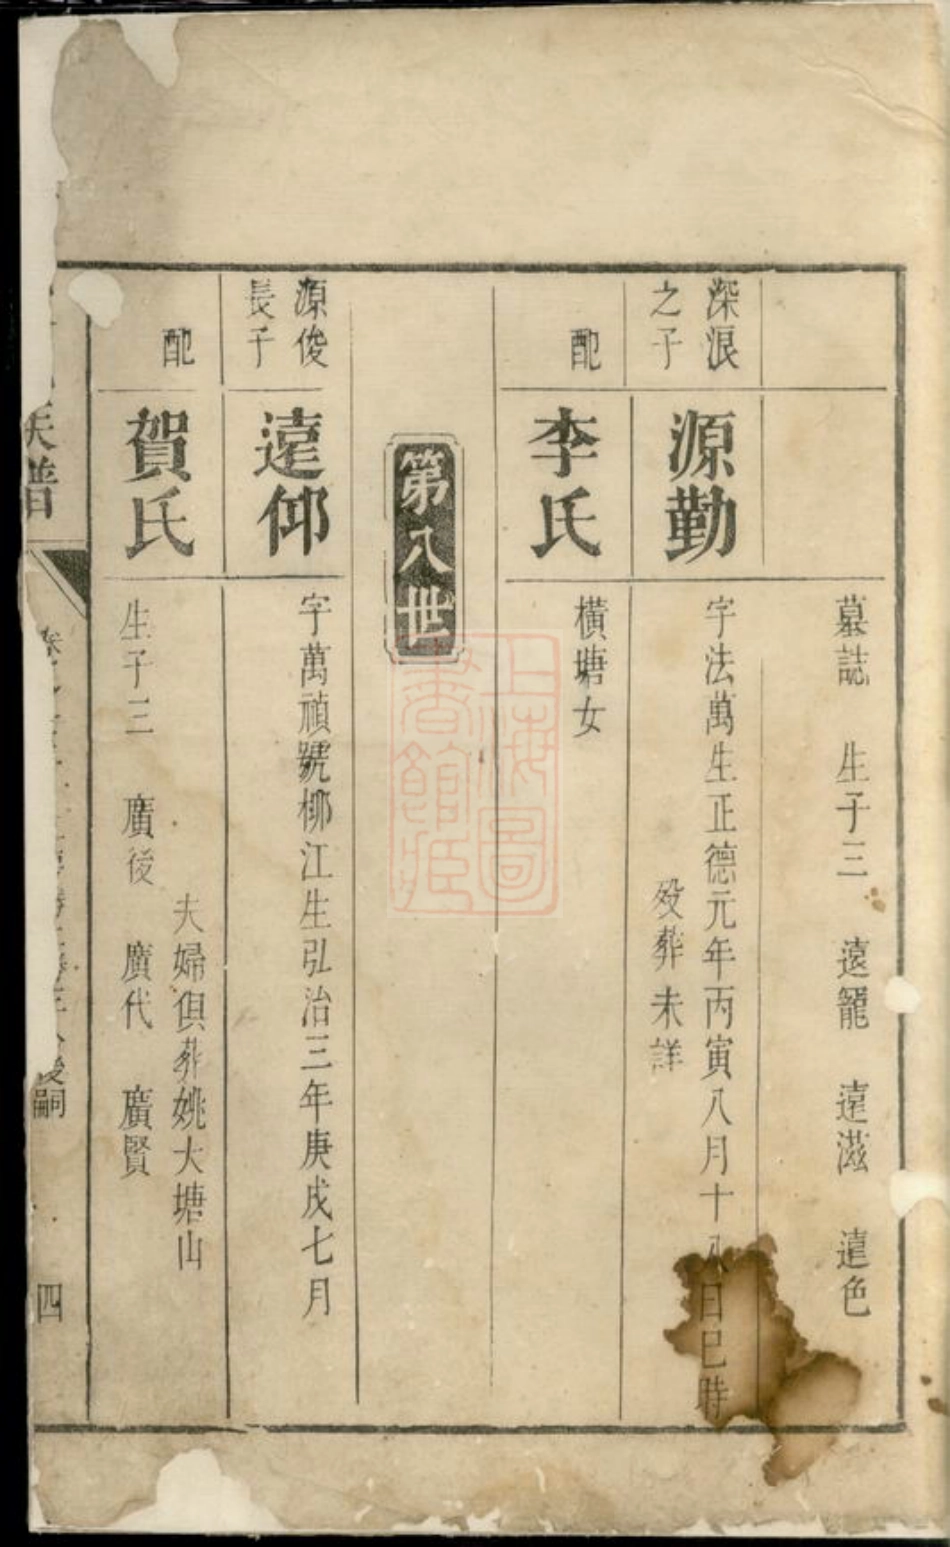 墓誌 生子三 遠寵 遠滋 遠色
深浪之子
源勤
字法萬生正德元年丙寅八月十八日巳時
歿葬未詳
配
李氏
橫塘女
第八世
源俊長子
遠仰
字萬禎號柳江生弘治三年庚戌七月
配
賀氏
夫婦俱葬姚大塘山
生子三 廣後 廣代 廣賢
族譜
後嗣
四
上海圖書館藏